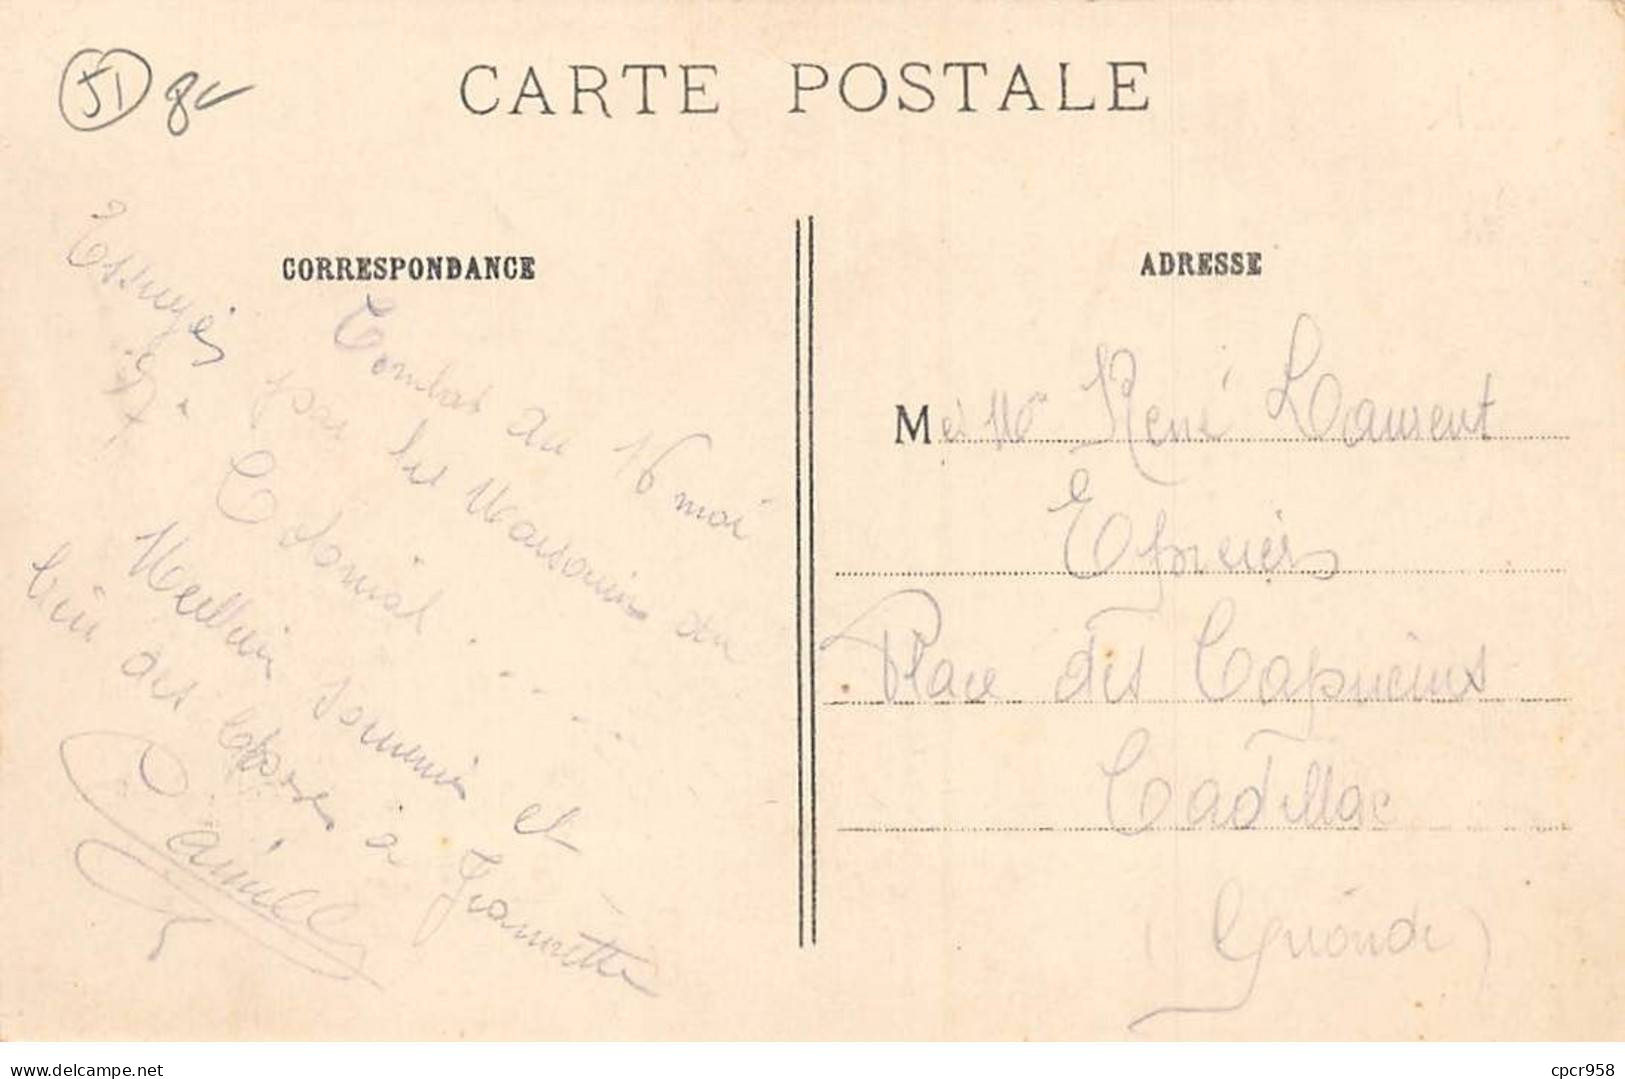 51
CARTE POSTALE
CORRESPONDANCE
Combat du 16 mai
Essuyés par les Marsouins du
Colonial . . . . .
Meilleur souvenir et
bien des choses à Jeannette
Camille
ADRESSE
M et Mme René Laurent
Epiciers
Place des Capucins
Cadillac
(Gironde)
www.delcampe.net
cpcr958